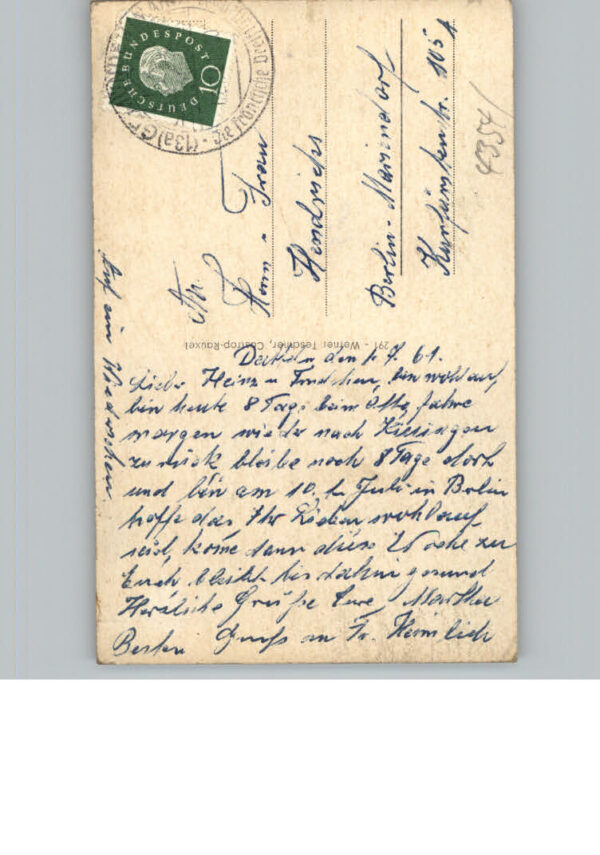 DEUTSCHE BUNDESPOST
10
(13a)
An
Herrn u Frau
Hendrichs
Berlin-Mariendorf
Kurfürstenstr. 105
4354/
291 - Werner Teschner, Castrop-Rauxel
Datteln den 1. 7. 61.
Liebe Heinz u Trudchen, bin wohl auf
bin heute 8 Tage beim fahre
morgen wieder nach Kissingen
zurück bleibe noch 8 Tage dort
und bin am 10. Juli in Berlin
hoffe das Ihr Lieben wohlauf
seid, kome dann diese Woche zu
Euch, bleibt bis dahin gesund
Herzliche Grüße Eure Martha
Besten Gruß an Fr. Heimlich
Auf ein Wiedersehen